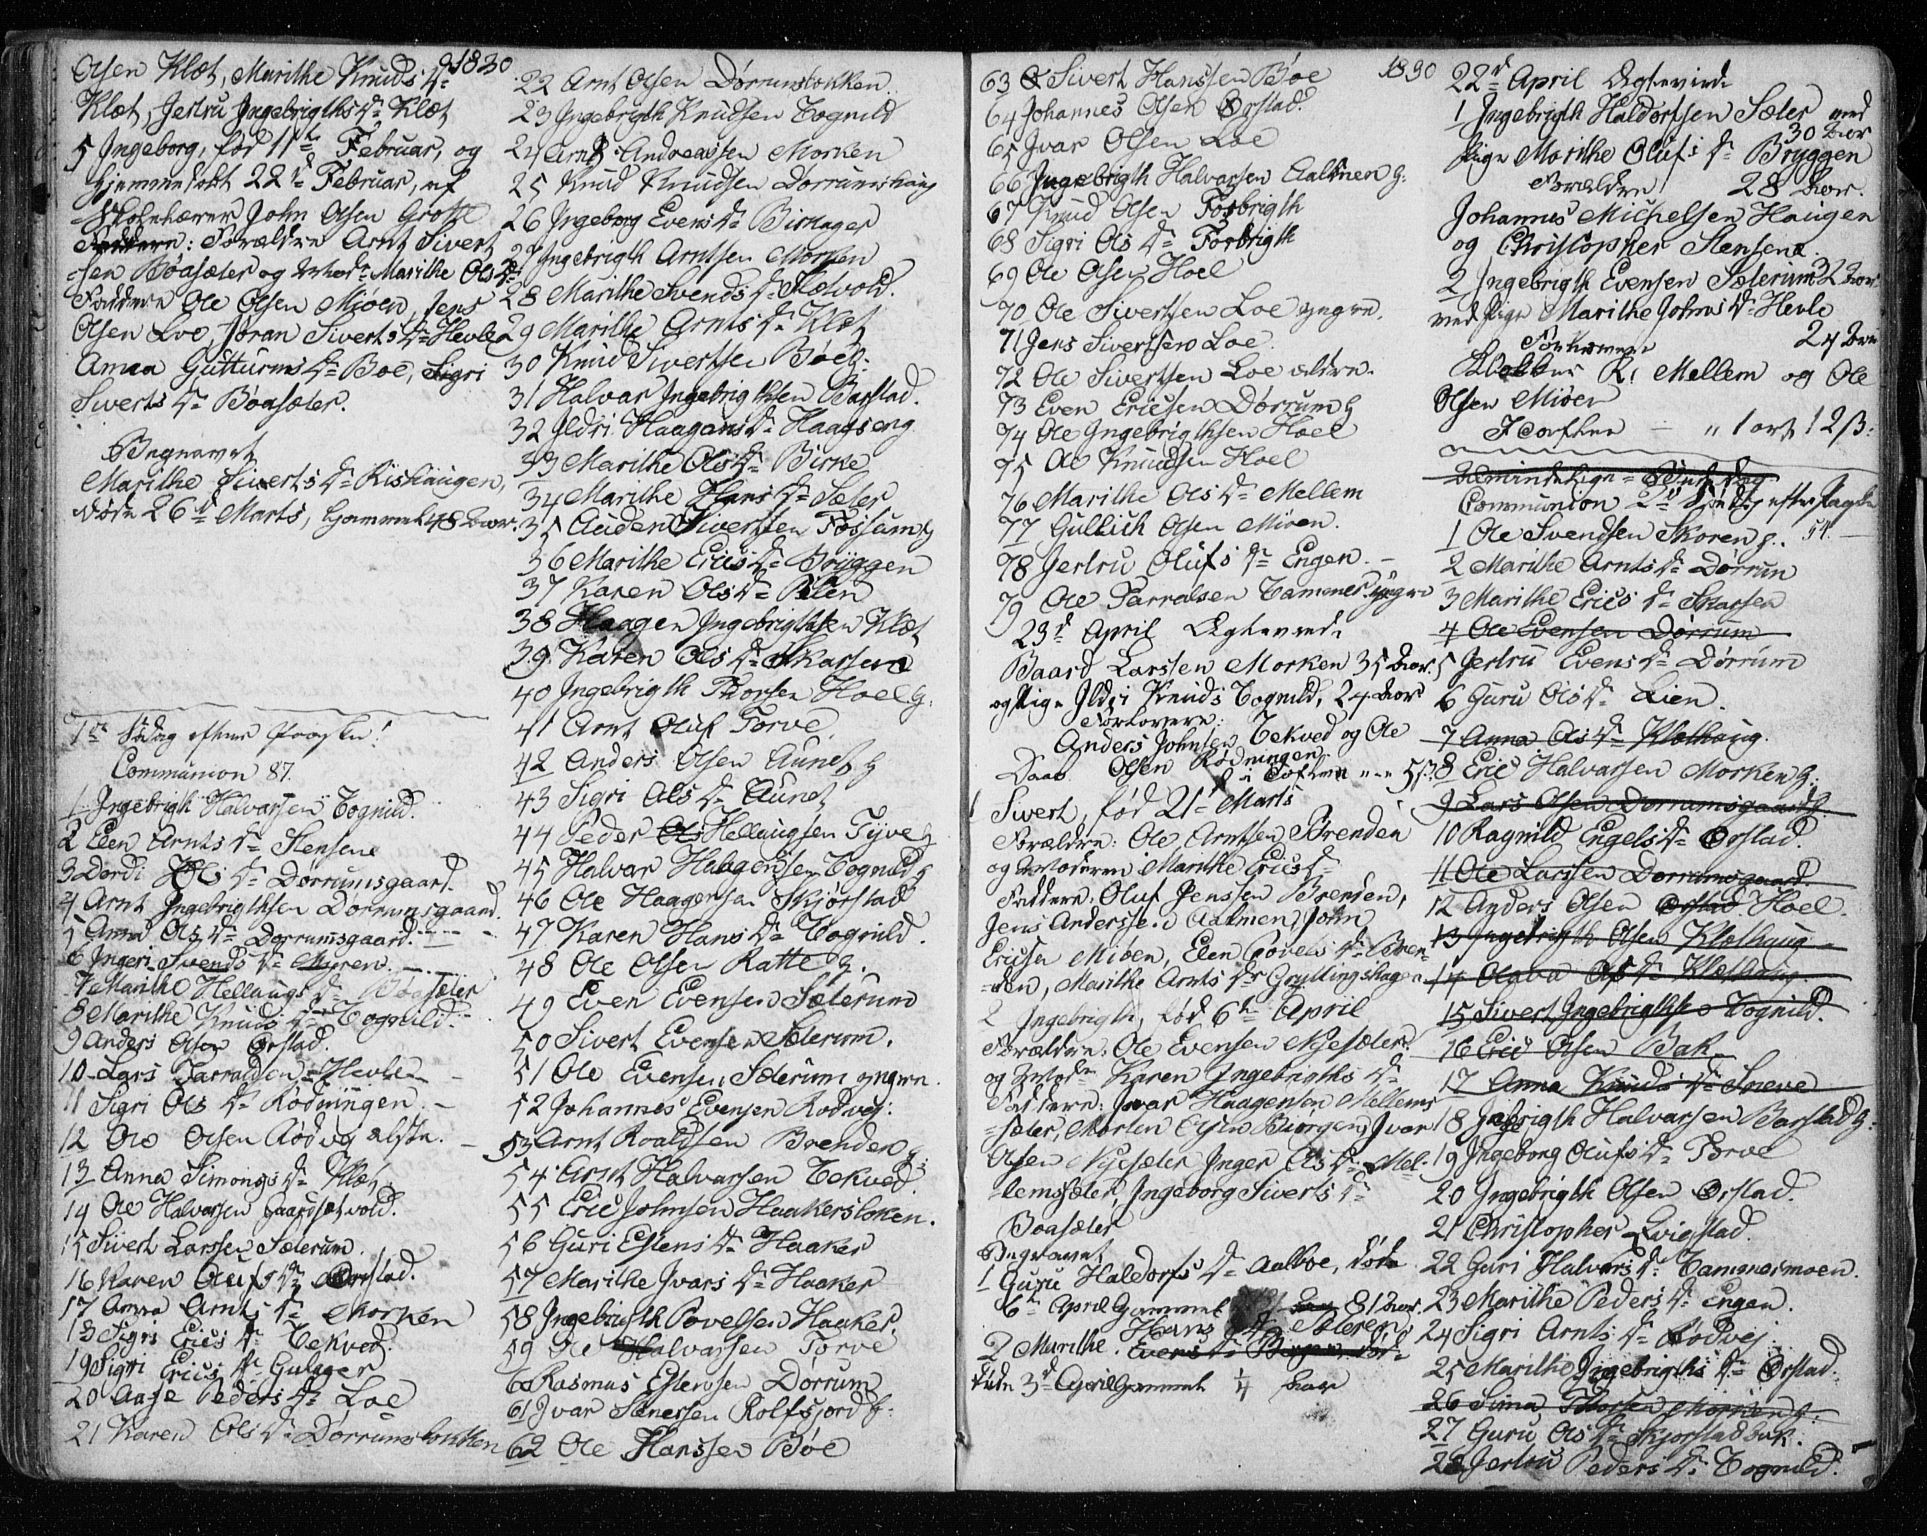 1830
Olsen Klæt, Marithe Knuds Dr
Klæt, Jertru Ingebrigths Dr Klæt
5 Ingeborg, fød 11te Februar, og
hjemmedøbt 22d Februar, af
Skoleholder John Olsen Grotte
Faddere: Forældre Arnt Sivert
-sen Bøasæter og Moder Marithe Ols Dr
Faddere Ole Olsen Mioen, Jens
Olsen Loe, Jøran Siverts Dr Hevle
Anna Gutturms Dr Boe, Sigri
Siverts Dr Bøasæter.
Begravet
Marithe Siverts Dr Rishaugen,
døde 26d Marts, Gammel 48 Aar.
1te Sødag efter Paaske!
Communion 87.
1 Ingebrigth Halvarsen Tognild.
2 Elen Arnts Dr Stensene
3 Dordi Ols Dr Dørrumsgaard.
4 Arnt Ingebrigthsen Dørrumsgaard.
5 Anna Ols Dr Dørrumsgaard.
6 Ingeri Svends Dr Myren.
7 Marithe Hellaugs Dr Bøasæter
8 Marithe Knuds Dr Tognild.
9 Anders Olsen Ørstad.
10 Lars Tarraldsen Hevle
11 Sigri Ols Dr Rødningen.
12 Ole Olsen Rødvej ælste.
13 Anna Simongs Dr Klæt
14 Ole Halvarsen Gaardsætvold.
15 Sivert Larssen Sæterum.
16 Karen Olufs Dr Ørstad.
17 Anna Arnts Dr Morken
18 Sigri Erics Dr Tekved.
19 Sigri Erics Dr Gulager
20 Aase Peders Dr Loe
21 Karen Ols Dr Dørrumsløkken
22 Arnt Olsen Dørrumsløkken.
23 Ingebrigth Knudsen Tognild
24 Arnt Andreassen Morken
25 Knud Knudsen Dørrumshaug
26 Ingeborg Evens Dr Birkager
27 Ingebrigth Arntsen Morken
28 Marithe Svends Dr Sætvold.
29 Marithe Arnts Dr Klæt
30 Knud Sivertsen Bøe g.
31 Halvar Ingebrigthsen Barstad.
32 Ildri Haagens Dr Haagseng
33 Marithe Ols Dr Birke
34 Marithe Hans Dr Sæter
35 Auden Sivertsen Fossum g
36 Marithe Erics Dr Bryggen
37 Karen Ols Dr Plen
38 Haagen Ingebrigthsen Klæt
39 Karen Ols Dr Skarsem
40 Ingebrigth Thorsen Hoel g.
41 Arnt Oluf Torve
42 Anders Olsen Aunet g
43 Sigri Ols Dr Aunet
44 Peder Ols Hellaugsen Tyve g
45 Halvar Haagensen Tognild g
46 Ole Haagensen Skjørstad
47 Karen Hans Dr Tognild.
48 Ole Olsen Ratte g.
49 Even Evensen Sæterum
50 Sivert Evensen Sæterum.
51 Ole Evensen Sæterum yngre.
52 Johannes Evensen Rødvej.
53 Arnt Roaldsen Brenden g.
54 Arnt Halvarsen Tekved.
55 Eric Johnsen Haakersløken.
56 Guri Estens Dr Haaker
57 Marithe Ivars Dr Haaker
58 Ingebrigth Povelsen Haaker.
59 Ole Halvarsen Torve
60 Rasmus Estensen Dørrum
61 Ivar Stenersen Rolfsjord g.
62 Ole Hanssen Bøe
1830
63 Sivert Hanssen Bøe
64 Johannes Olsen Ørstad.
65 Ivar Olsen Loe
66 Ingebrigth Halvarsen Aalmen g.
67 Knud Olsen Fosbrigth
68 Sigri Ols Dr Fosbrigth
69 Ole Olsen Hoel
70 Ole Sivertsen Loe yngre.
71 Jens Sivertsen Loe.
72 Ole Sivertsen Loe ældre.
73 Even Ericsen Dørrum g
74 Ole Ingebrigthsen Hoel
75 Ole Knudsen Hoel
76 Marithe Ols Dr Mellem
77 Gullich Olsen Mioen.
78 Jertru Olufs Dr Engen.
79 Ole Tarralsen Tammes yngre
23d April Ægteviede
Baard Larssen Morken 35 Aar.
og Pige Ildri Knuds Tognild, 24 Aar
Forlovere:
Anders Johnsen Tekved og Ole
Olsen Rødningen
Daab
1 Sivert, fød 21d Marts
Forældre: Ole Arntsen Brenden
og Moderen Marithe Erics Dr
Faddere: Oluf Jenssen Brenden,
Jens Anderssen Aalmen, John
Ericsen Mioen, Elen Povels Dr Bren-
-den, Marithe Arnts Dr Gryttingshagen
2 Ingebrigth, fød 6te April
Forældre: Ole Evensen Nysæter
og Moder Karen Ingebrigths Dr
Faddere: Ivar Haagensen Mellems
-sæter, Morten Olsen Bjørgen, Ivar
Olsen Nysæter, Inger Ols Dr Mel-
lemsæter, Ingeborg Siverts Dr
Bøasæter
Begravet
1 Guru Haldorfs Dr Aalbøe, døde
6te April Gammel 81 Aar.
Hans Dr Sæteren,
2 Marithe Evens Dr
døde 3d April Gammel 1/4 Aar
22d April Ægteviede
1 Ingebrigth Haldorfsen Sæter med
30 Aar
Pige Marithe Olufs Dr Bryggen
Forældre 28 Aar.
Johannes Michelsen Haugen
og Christopher Stensene.
2 Ingebrigth Evensen Sæterum 32 Aar
med Pige Marithe Johns Dr Hevle
Forlovere 24 Aar
Klokker R. Mellem og Ole
Olsen Mioen
Tavlen - „ 1 ort 12 ß.
Almindelige Bededag
Communion 2d Sødag efter Paaske
54.
1 Ole Svendsen Skoren g.
2 Marithe Arnts Dr Dørrum
3 Marithe Erics Dr Skarsem
4 Ole Evensen Dørrum
5 Jertru Evens Dr Dørrum
6 Guru Ols Dr Lien.
7 Anna Ols Dr Klæthaug.
8 Eric Halvarsen Morken g.
9 Lars Olsen Dørrumsgaard g.
10 Ragnild Engels Dr Ørstad.
11 Ole Larssen Dørrumsgaard.
12 Anders Olsen Ørstad Hoel.
13 Ingebrigth Olsen Klæthaug
14 Olava Ols Dr Klæthaug.
15 Sivert Ingebrigths Tognild.
16 Eric Olsen Bak
17 Anna Knuds Dr Sneve
18 Ingebrigth Halvarsen Barstad g.
19 Ingeborg Olufs Dr Torve
20 Ingebrigth Olsen Ørstad.
21 Christopher Qvigstad.
22 Guri Halvars Dr Tammesmoen.
23 Marithe Peders Dr Engen.
24 Sigri Arnts Dr Rødvej
25 Marithe Ingebrigths Dr Ørstad.
26 Simen Thorsen Morken g.
27 Guru Ols Dr Skjørstadbak.
28 Jertru Peders Dr Tognild.